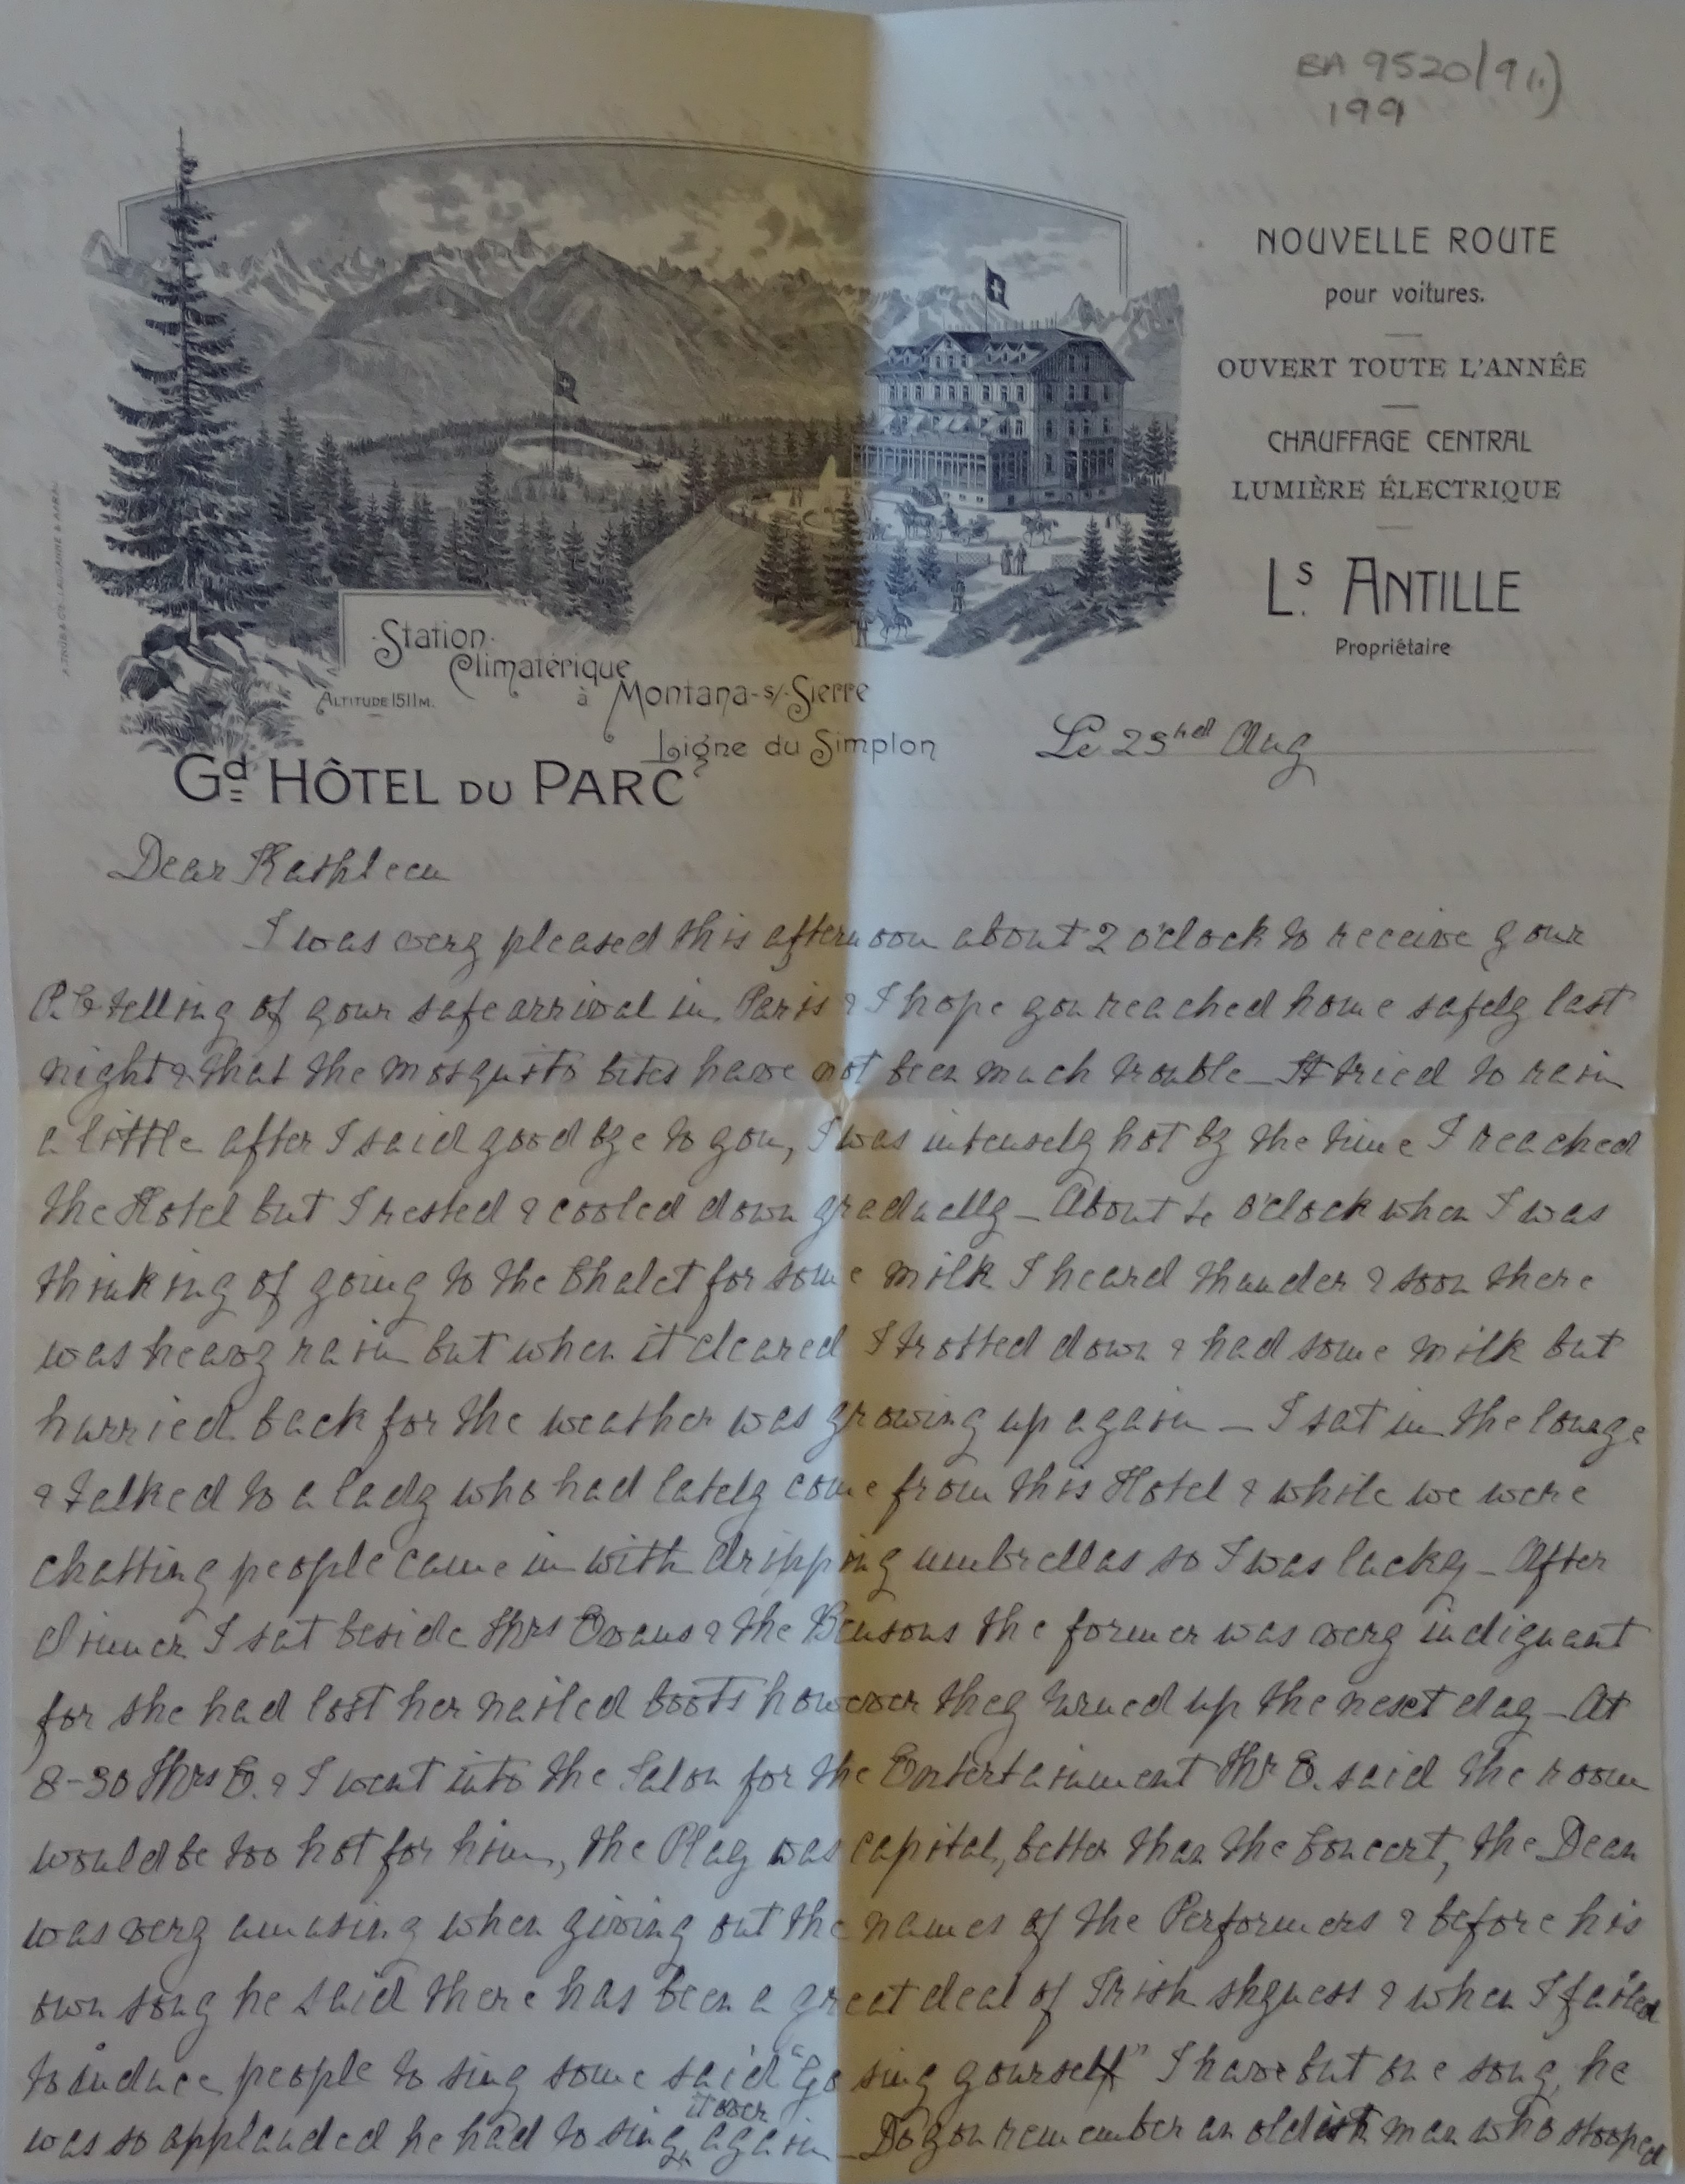 BA 9520/9(i.)
199
NOUVELLE ROUTE
pour voitures.
OUVERT TOUTE L'ANNÉE
CHAUFFAGE CENTRAL
LUMIÈRE ÉLECTRIQUE
Ls. ANTILLE
Propriétaire
Station
Climatérique
ALTITUDE 1511 M.
à Montana-s/-Sierre
Ligne du Simplon
Gd HÔTEL DU PARC
Le 23rd Aug
Dear Kathleen
I was very pleased this afternoon about 2 o'clock to receive your
P.C. telling of your safe arrival in Paris & I hope you reached home safely last
night & that the mosquito bites have not been much trouble – It tried to rain
a little after I said good bye to you, I was intensely hot by the time I reached
the Hotel but I rested & cooled down gradually – About 4 o'clock when I was
thinking of going to the Chalet for some milk I heard thunder & soon there
was heavy rain but when it cleared I trotted down & had some milk but
hurried back for the weather was growing up again – I sat in the lounge
& talked to a lady who had lately come from this Hotel & while we were
chatting people came in with dripping umbrellas so I was lucky – After
dinner I sat beside Mrs Evans & the Bensons the former was very indignant
for she had lost her nailed boots however they turned up the next day – At
8-30 Mrs E. & I went into the Salon for the Entertainment Mr E. said the room
would be too hot for him, the Play was capital, better than the Concert, the Dean
was very amusing when giving out the names of the Performers & before his
own song he said there has been a great deal of Irish shyness & when I failed
to induce people to sing some said "Go sing yourself" I have but one song, he
was so applauded he had to sing it over again – Do you remember an oldish man who stooped